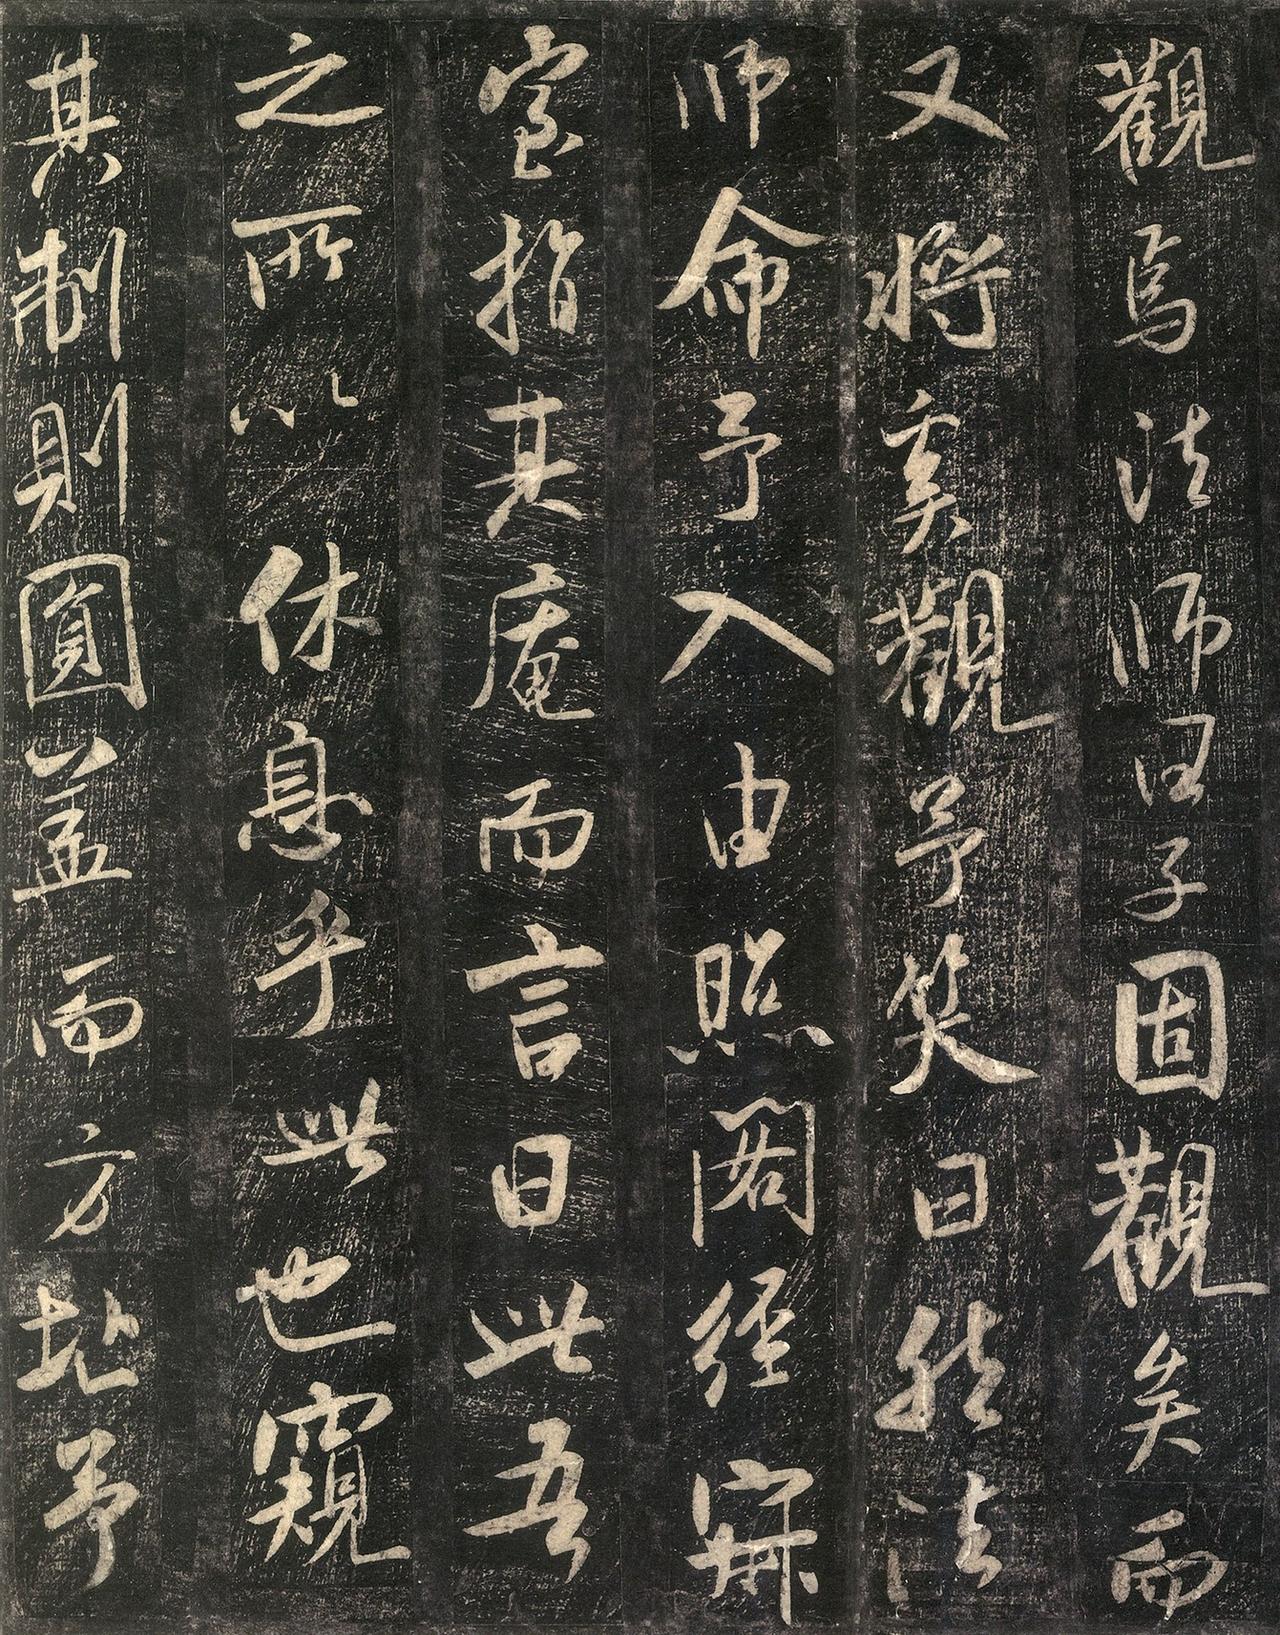 觀焉法師曰子固觀矣而
又將奚觀予笑曰然法
師命予入由照閣經寂
室指其庵而言曰此吾
之所以休息乎此也窺
其制則圓蓋而方址予